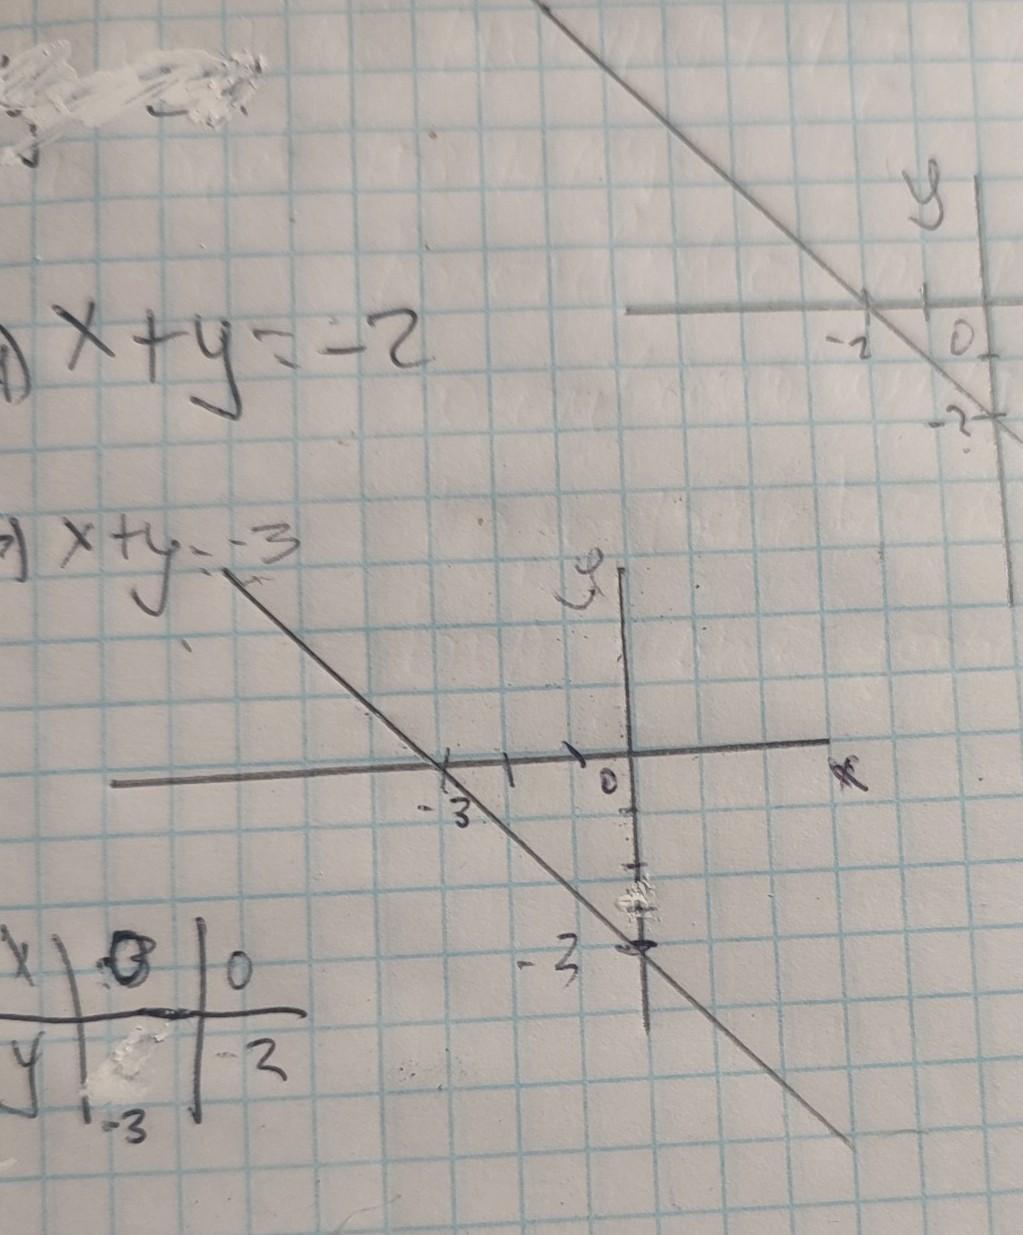 y
x+y=-2
-2
0
-2
x+y=-3
y
0
x
-3
-3
x 0 0
y -3 -2